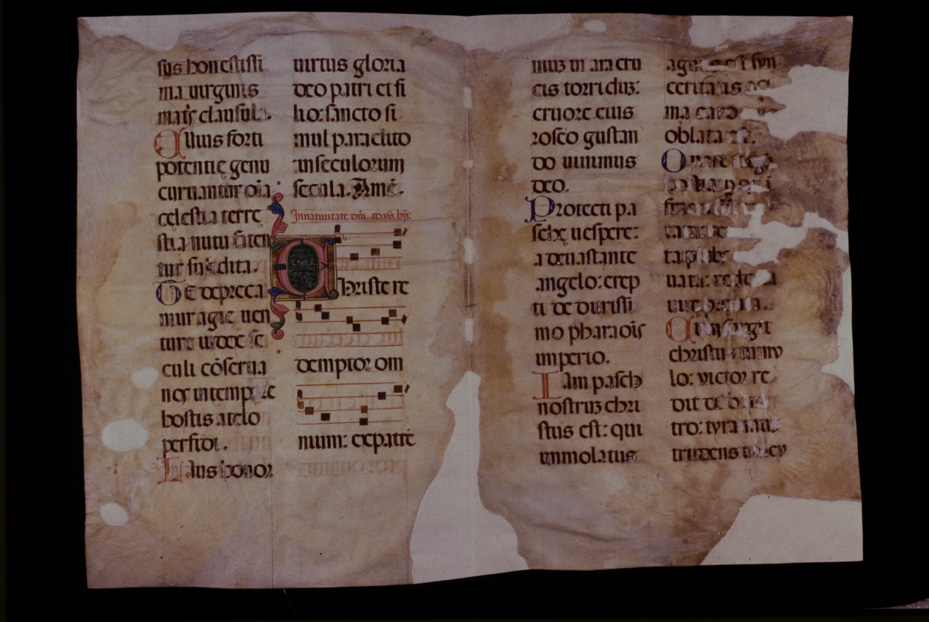 sus honestissi
ma virginis
matris clausula.
Cuius forti
potentie genu
curvantur omia
celestia terre
stia nutu faten
tur subdita.
Te depreca
mur agie ven
ture iudex se
culi conserva
nos in tempore
hostis a telo
perfidi.
Laus honor
virtus gloria
deo patri et fi
lio: sancto si
mul paraclito
in seculorum
secula. Amen.
In nativitate
Christe re
demptor om
nium: ex patre
mus in ara cru
cis torridum:
cruore eius
roseo gustan
do vivimus
deo.
Protecti pa
sche vespere:
a devastante
angelo: erep
ti de durissi
mo pharaonis
imperio.
Iam pascha
nostrum chri
stus est: qui
immolatus
agnus est syn
oblata
christus
lo: victor re
dit de
tro: tyrannum
trudens